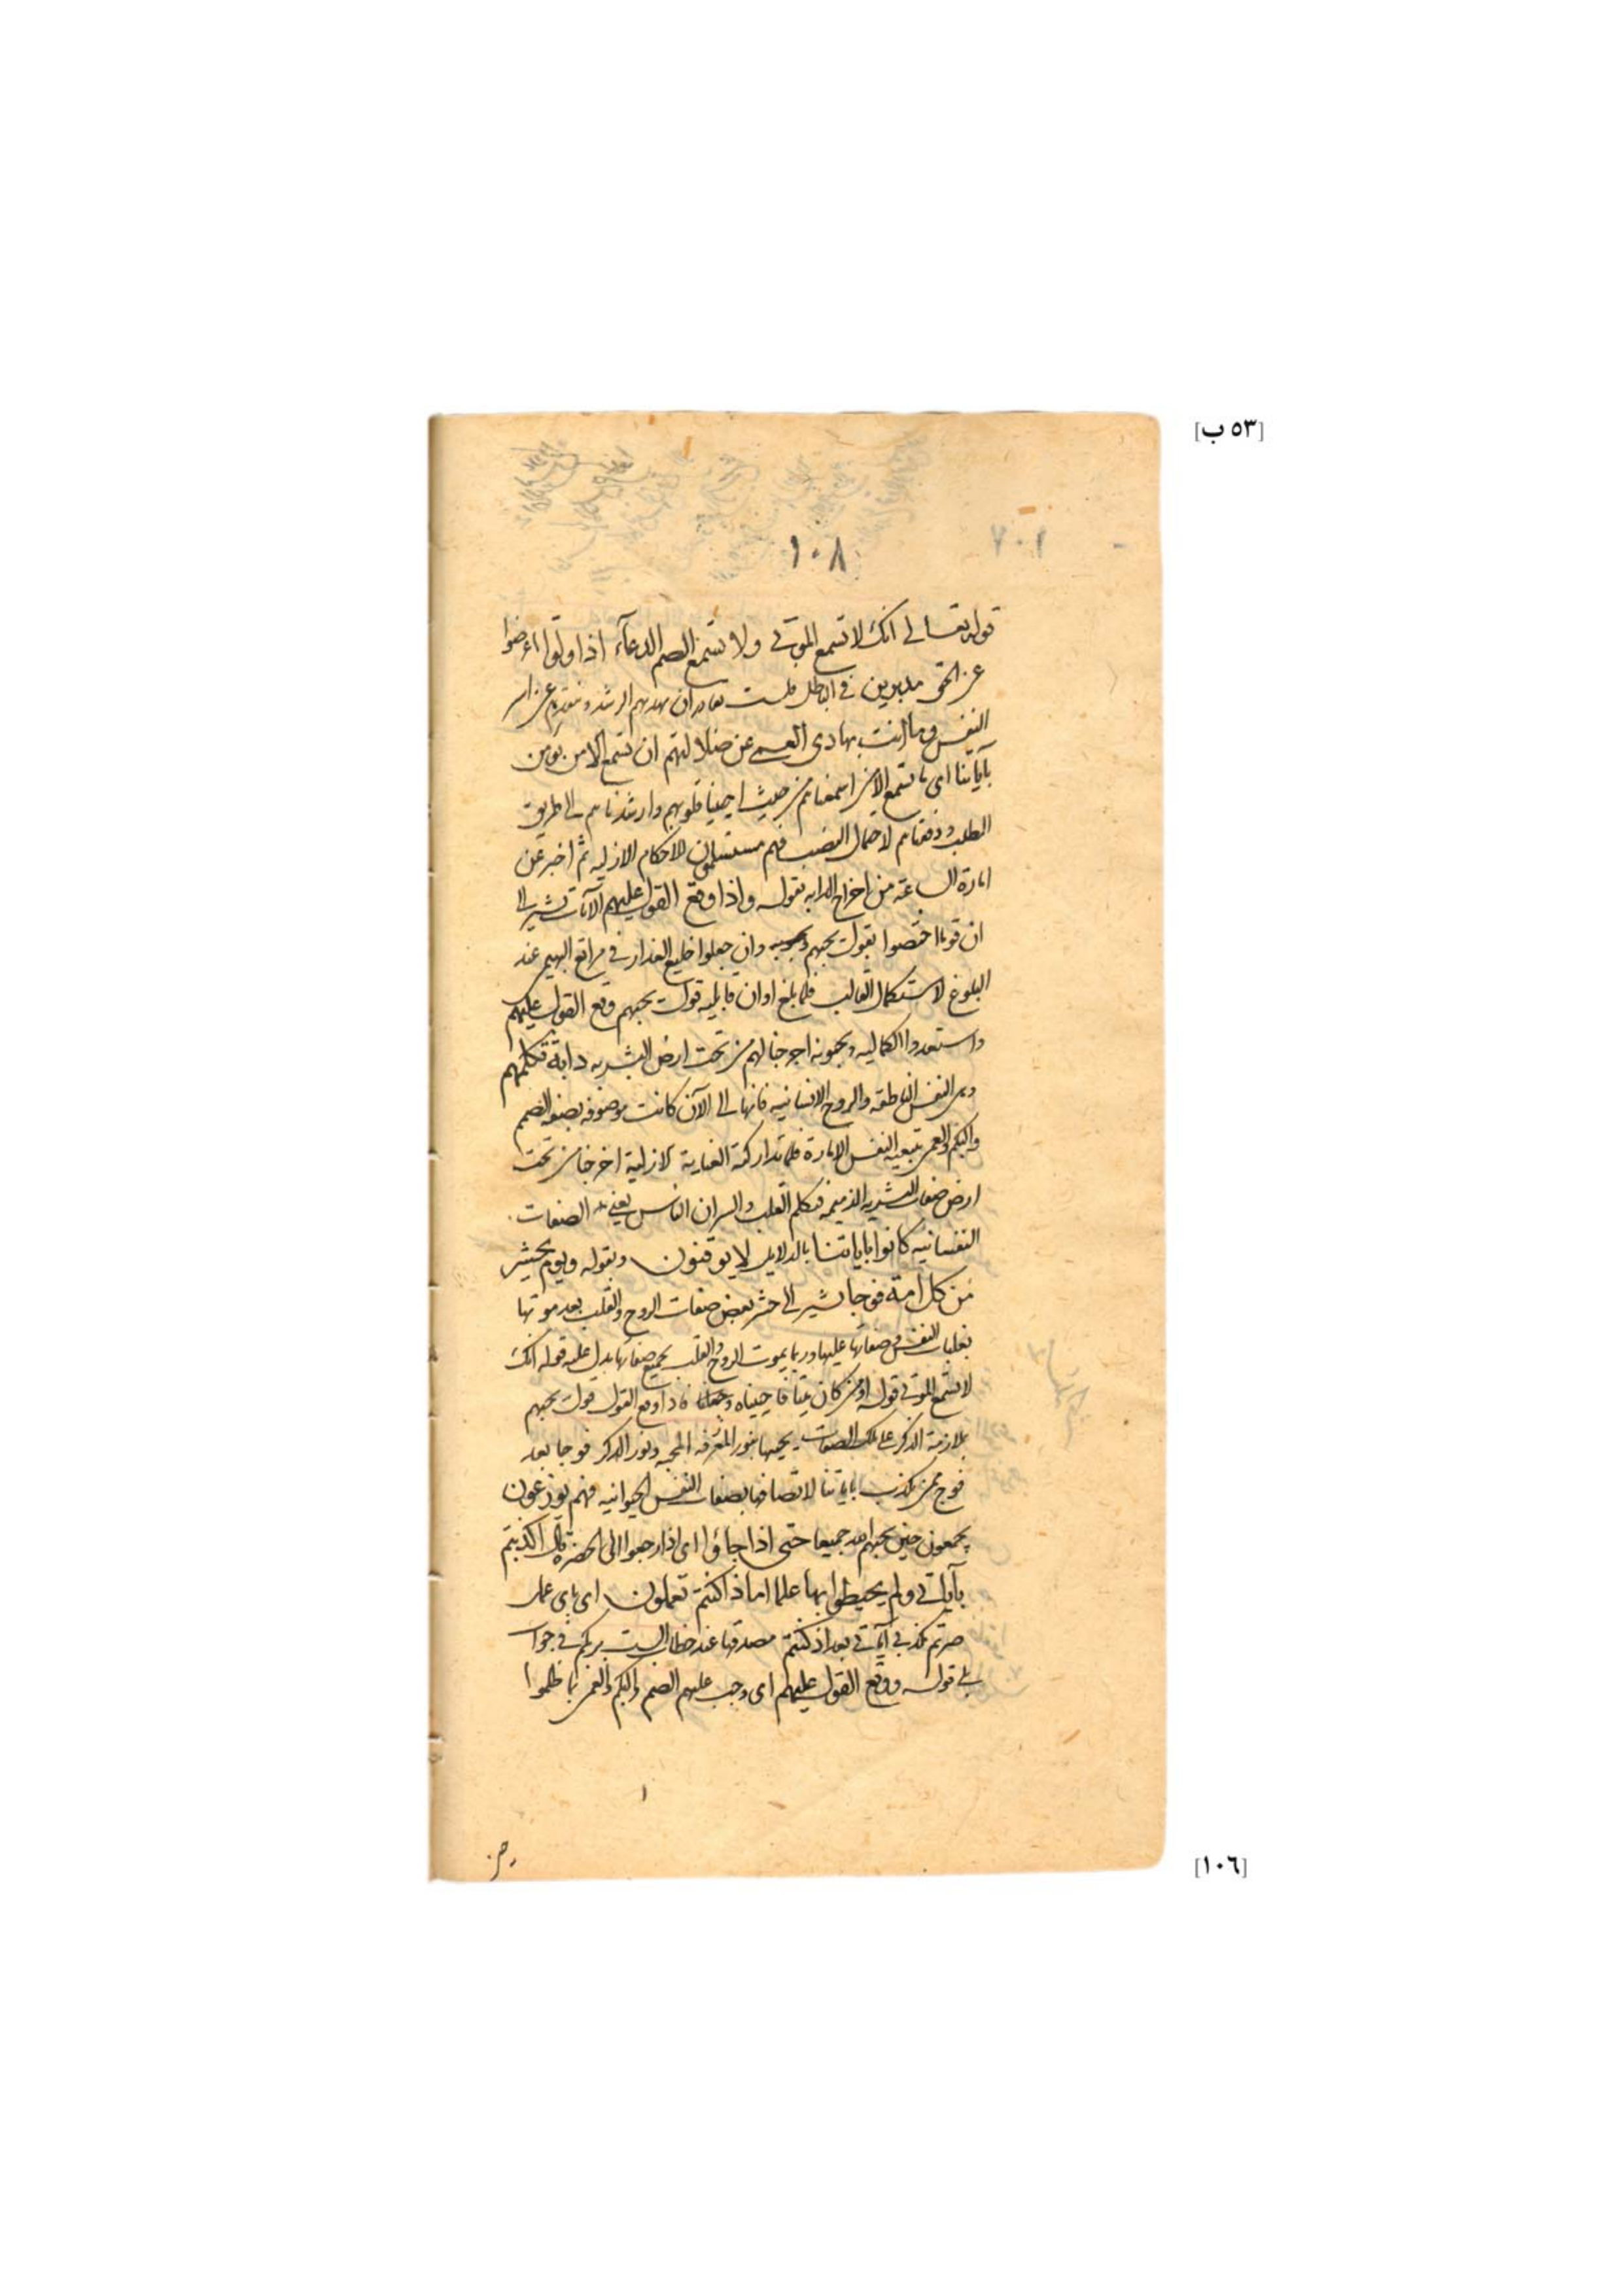 [٥٣ ب]
١٠٨
قوله تعالى انك لا تسمع الموتى ولا تسمع الصم الدعآء اذا ولوا اعرضوا
عن الحق مدبرين في الباطل فلست بقادر ان تهديهم الرشد و
النفس وما انت بهادى العمى عن ضلالتهم ان تسمع الا من يؤمن
بآياتنا اى ما تسمع الا من اسمعناهم من حيث احيينا قلوبهم وارشدناهم الى طريق
الطلب ووفقناهم لاحمال النصب فهم مستسلمون لاحكام الازليه ثم اخبر عن
امارة الساعة من اخراج الدابه بقوله واذا وقع القول عليهم الآيات تشير الى
ان قوما اختصوا بقول يحبهم ويحبونه وان جعلوا خليع العذار في مراتع البهيمى عند
البلوغ لاستكمال القالب فلما بلغ اوان قابليه قول يحبهم وقع القول عليهم
واستعدوا لكماليه ويحبونه اخرجنا لهم من تحت ارض البشريه دابة تكلمهم
وهى النفس الناطقه والروح الانسانيه فانها الى الآن كانت موصوفه بصفه الصم
والبكم والعمى بتبعيه النفس الامارة فلما تداركته العناية لازلية اخرجنا من تحت
ارض صفات البشريه الذميمه فتكلم القلب والسر ان الناس يعنى الصفات
النفسانيه كانوا باياتنا بالدلايل لا يوقنون وبقوله ويوم يحشر
من كل امة فوجا يشير الى حشر بعض صفات الروح والقلب بعد موتها
بغلبات النفس وصفاتها عليها وربما يموت الروح والقلب بجميع صفاتها يدل عليه قوله انك
لا تسمع الموتى قوله اومن كان ميتا فاحييناه وجعلنا فاذا وقع القول قول يحبهم
بملازمة الذكر على تلك الصفات يحييها بنور المعرفه المحبه ونور الذكر فوجا بعد
فوج ممن يكذب باياتنا لاتصافها بصفات النفس الحيوانيه فهم يوزعون
يجمعون حين يحبهم الله جميعا حتى اذا جاؤا اى اذا رجعوا الى الحضرة قال اكذبتم
بآياتى ولم يحيطوا بها علما اماذا كنتم تعملون اى باى عمل
صرتم مكذبى آياتى بعد اذ كنتم مصدقيها عند خطاب الست بربكم في جواب
بلى قوله ووقع القول عليهم اى وجب عليهم الصم والبكم والعمى بما ظلموا
[١٠٦]